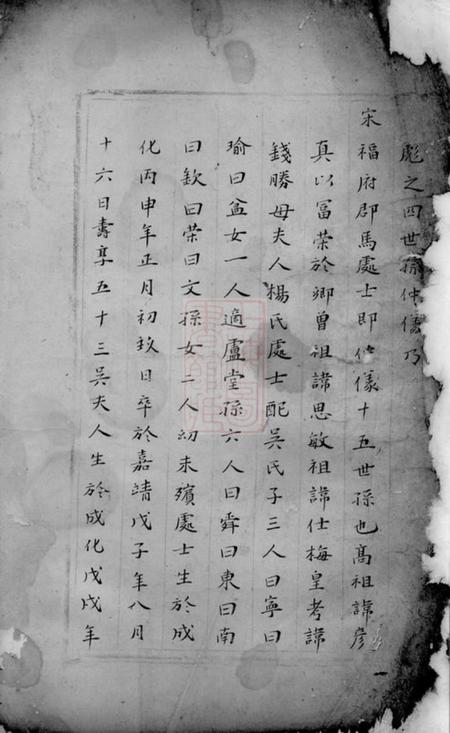 彪之四世孫仲儀乃
宋福府郡馬處士即仲儀十五世孫也高祖諱彦
真以冨荣於卿曾祖諱思敏祖諱仕梅皇考諱
錢勝母夫人楊氏處士配吳氏子三人曰寧曰
瑜曰益女一人適盧堂孫六人曰舜曰東曰南
曰欽曰荣曰文孫女二人幼未殯處士生於成
化丙申年正月初玖日卒於嘉靖戊子年八月
十六日壽享五十三吳夫人生於成化戊戌年